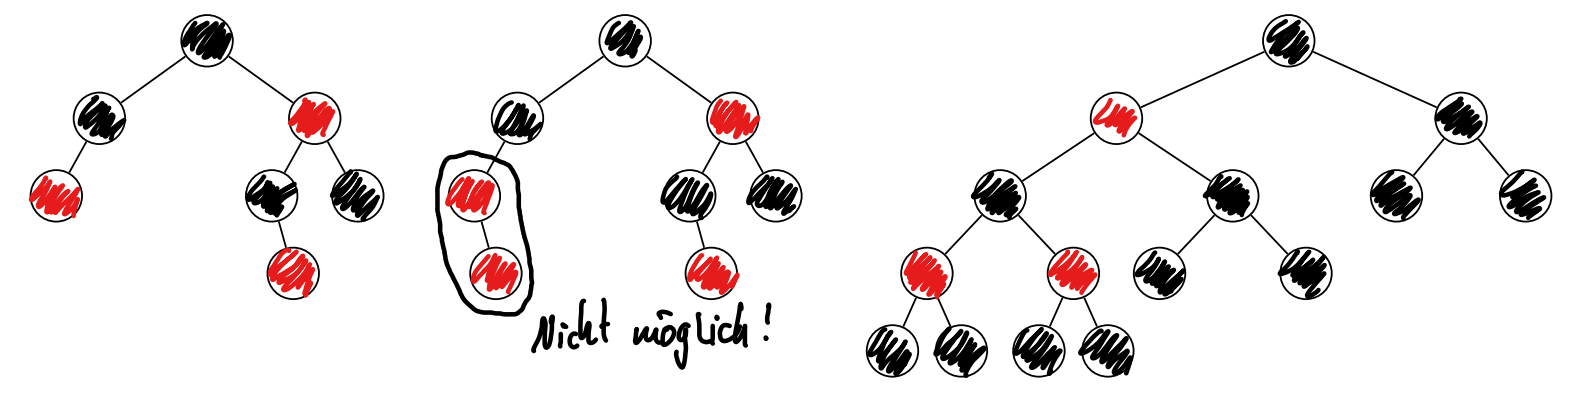 Nicht möglich!